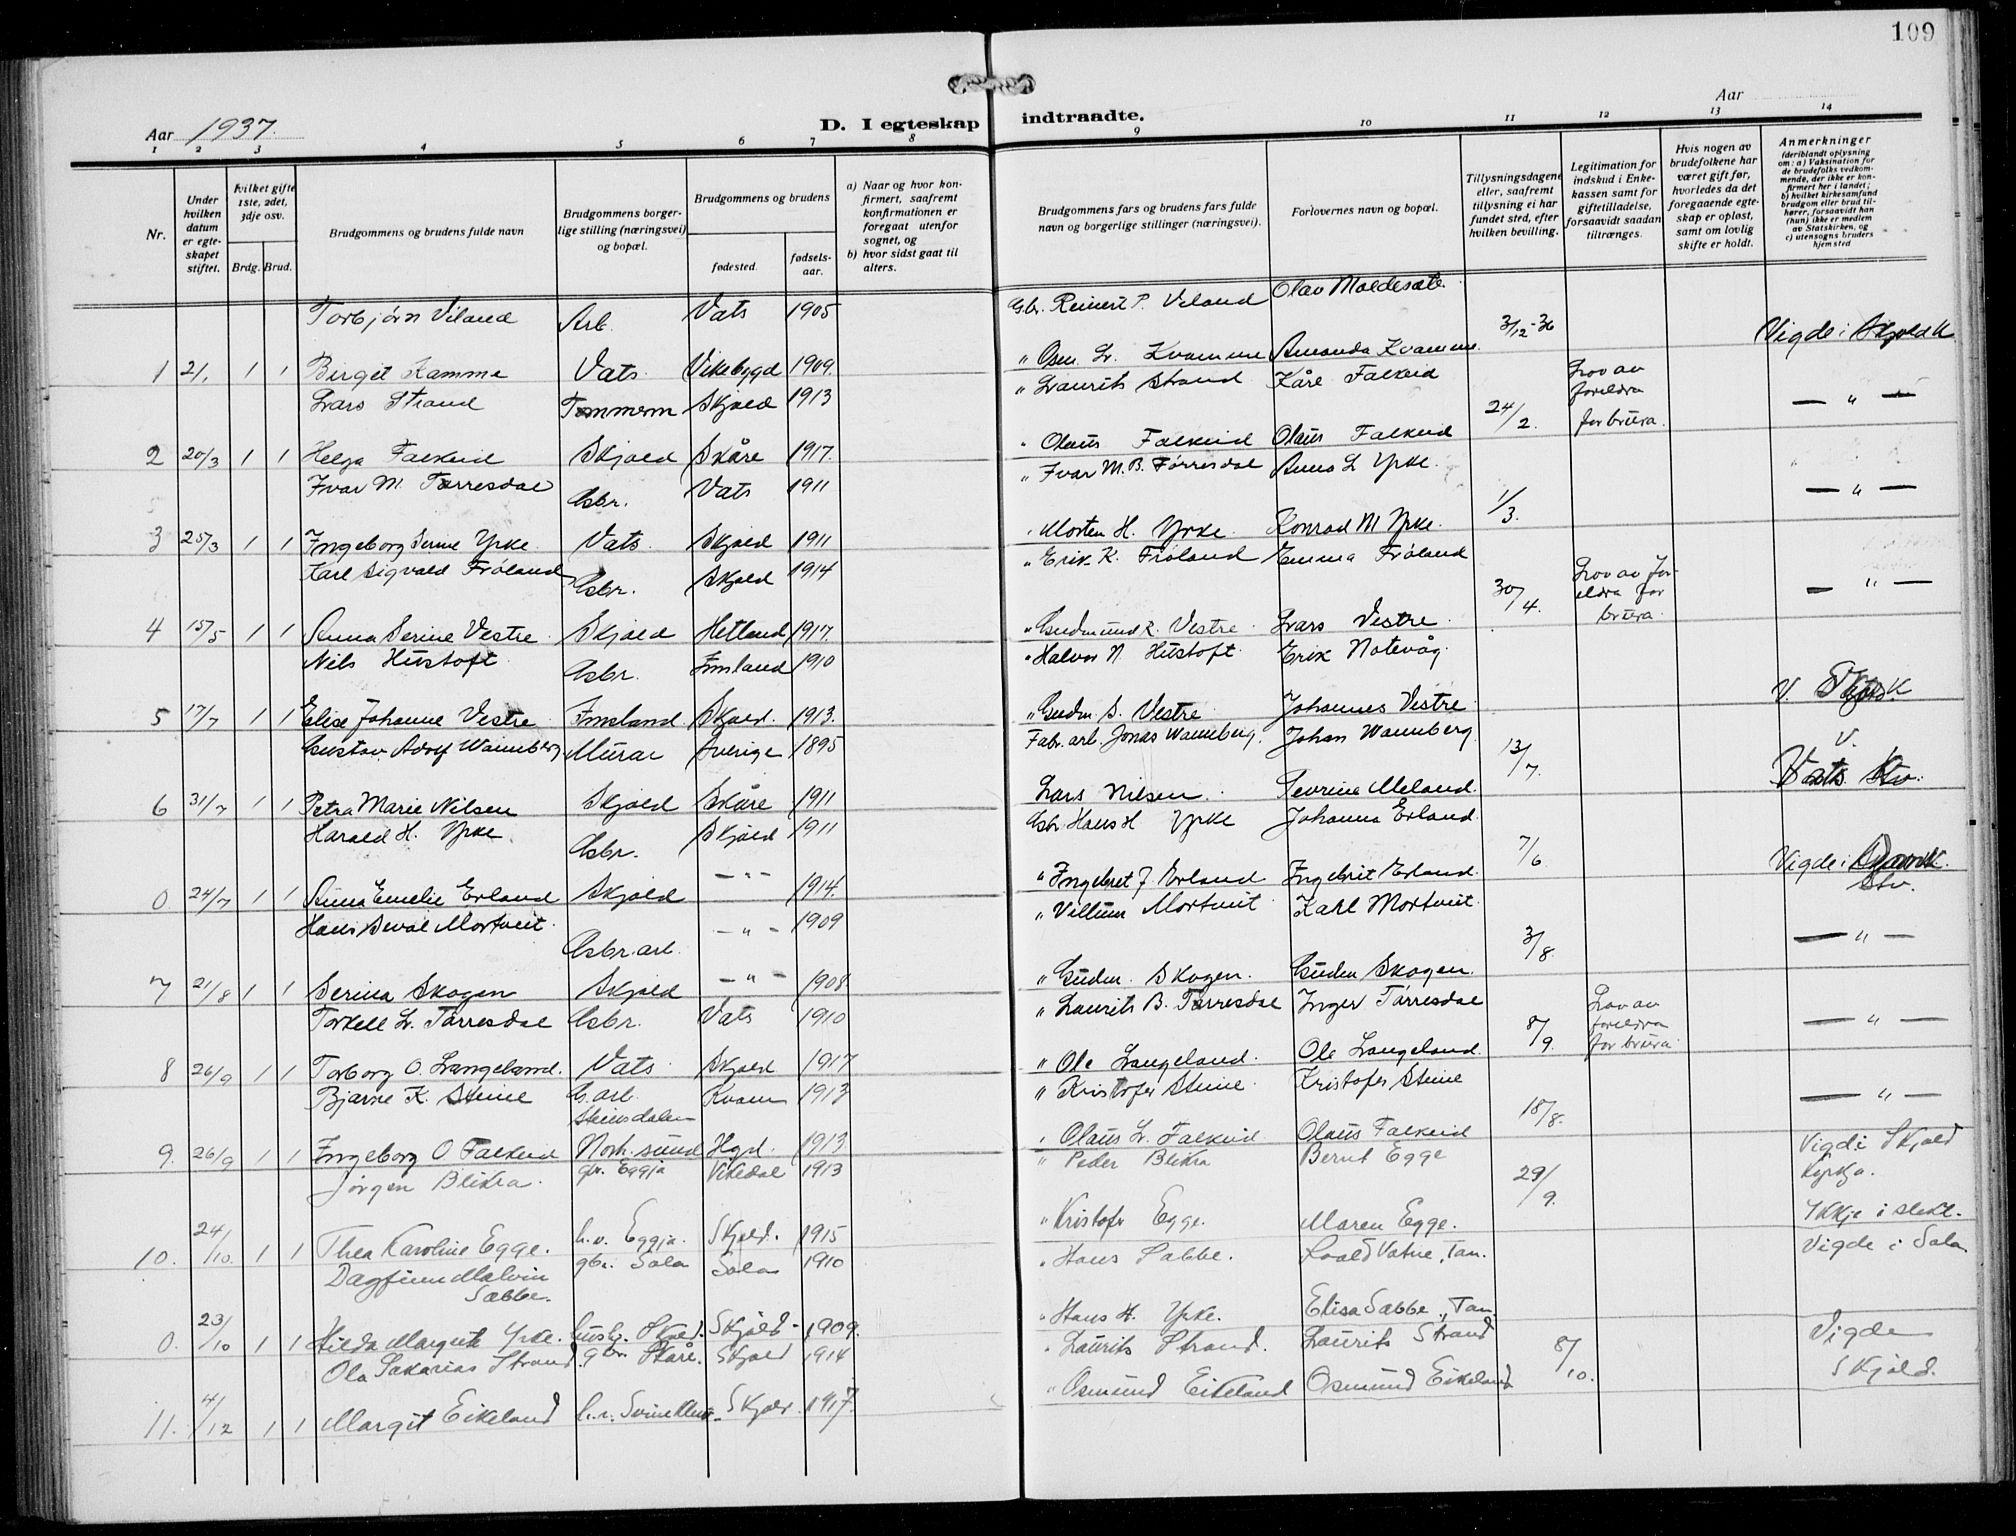 109
Aar 1937.
D. I egteskap indtraadte.
Aar
1 2 3 4 5 6 7 8 9 10 11 12 13 14
Nr.
Under hvilken datum er egteskapet stiftet.
hvilket gifte 1ste, 2det, 3dje osv.
Brdg. Brud.
Brudgommens og brudens fulde navn
Brudgommens borgerlige stilling (næringsvei) og bopæl.
Brudgommens og brudens
fødested.
fødselsaar.
a) Naar og hvor konfirmert, saafremt konfirmationen er foregaat utenfor sognet, og
b) hvor sidst gaat til alters.
Brudgommens fars og brudens fars fulde navn og borgerlige stillinger (næringsvei).
Forlovernes navn og bopæl.
Tillysningsdagene eller, saafremt tillysning ei har fundet sted, efter hvilken bevilling.
Legitimation for indskud i Enkekassen samt for giftetilladelse, forsaavidt saadan tiltrænges.
Hvis nogen av brudefolkene har været gift før, hvorledes da det foregaaende egteskap er opløst, samt om lovlig skifte er holdt.
Anmerkninger (deriblandt oplysning om: a) Vaksination for de brudefolks vedkommende, der ikke er konfirmert her i landet; b) hvilket kirkesamfund brudgom eller brud tilhører, forsaavidt han (hun) ikke er medlem av Statskirken, og c) utensogns bruders hjemsted
Torbjørn Viland Arb. Vats 1905 Gbr. Reinert P. Viland Olav Moldesæte 3/12-36 Vigde i Skjold K
1 2/1 1 1 Birgit Kamme Vats Vikebygd 1909. " Osm. L. Kvamme Amanda Kvamme.
Lars Strand Tømmerm Skjold 1913 " Laurits Strand Kåre Falkeid 24/2. Lov av foreldra for brura. — " —
2 20/3 1 1 Helga Falkeid Skjold Skåre 1917. " Olaus Falkeid Olaus Falkeid
Ivar M. Tørresdal Gbr. Vats 1911 " Ivar M. B. Tørresdal Anna L Yrke. 1/3. — " —
3 25/3 1 1 Ingeborg Serine Yrke. Vats. Skjold 1911 " Morten H. Yrke. Konrad M Yrke.
Karl Sigvald Frøland Gbr. Skjold 1914 " Erik K. Frøland Emma Frøland 30/4. Lov av foreldra for brura. — " —
4 15/5 1 1 Anna Serine Vestre. Skjold Hetland 1917. " Gudmund R. Vestre. Lars Vestre.
Nils Hustoft Gbr. Imsland 1910 " Halvor N. Hustoft. Erik Notevåg. V.
5 17/7 1 1 Elise Johanne Vestre. Imsland Skjold. 1913. " Gudm S. Vestre Johannes Vestre
Gustav Adolf Wannberg. Murar Sverige 1895 Fabr. arb. Jonas Wannberg. Johan Wannberg. 13/7. V. Vats
6 31/7 1 1 Petra Marie Nilsen Skjold Skåre 1911 Lars Nilsen. Severine Meland.
Harald H. Yrke Gbr. Skjold 1911 Gbr. Hans H Yrke Johanna Erland. 7/6 Vigde i
0. 24/7 1 1 Anna Emelie Erland Skjold — " — 1914. " Ingebret J. Erland Ingebrit Erland.
Hans Seval Mortveit. Gbr. arb. — " — 1909 " Villum Mortveit Karl Mortveit. 3/8. — " —
7 21/8 1 1 Serina Skogen Skjold — " — 1908. " Gudm. Skogen. Gudm Skogen.
Torkell L. Tørresdal Gbr. Vats 1910 " Laurits B. Tørresdal Inger Tørresdal 8/9. Lov av foreldra for brura. — " —
8 26/9 1 1 Torborg O. Langeland. Vats Skjold 1917 " Ole Langeland. Ole Langeland.
Bjarne K. Steine G. arb. Steinsdalen Kvam 1913 " Kristofer Steine Kristofer Steine 18/8. — " —
9. 26/9 1 1 Ingeborg O. Falkeid Norh. sund Hgd. 1913 " Olaus L. Falkeid Olaus Falkeid
Jørgen Blikra. gbr. Eggja Vikedal 1913 " Peder Blikra Bernt Egge 29/9. Vigde i Skjold Kyrkja.
10. 24/10 1 1 Thea Karoline Egge. h.v. Eggja. Skjold. 1915 " Kristofr Egge. Maren Egge. Ikkje i slekt.
Dagfinn Malvin Sæbbe. gbr. Sola Sola 1910 " Hans Sæbbe. Vatne, Tan. Vigde i Sola
0. 23/10 1 1 Hilda Margrete Yrke. Skjold. Skjold. 1909. " Hans H. Yrke. Elisa Sæbbe, Tan.
Ola Sakarias Strand. gbr. Skåre. Skjold 1914 " Laurits Strand. Laurits Strand 8/10. Vigde Skjold.
11. 4/12 1 1 Margit Eikeland h.v. Skjold. 1917. " Osmund Eikeland Osmund Eikeland